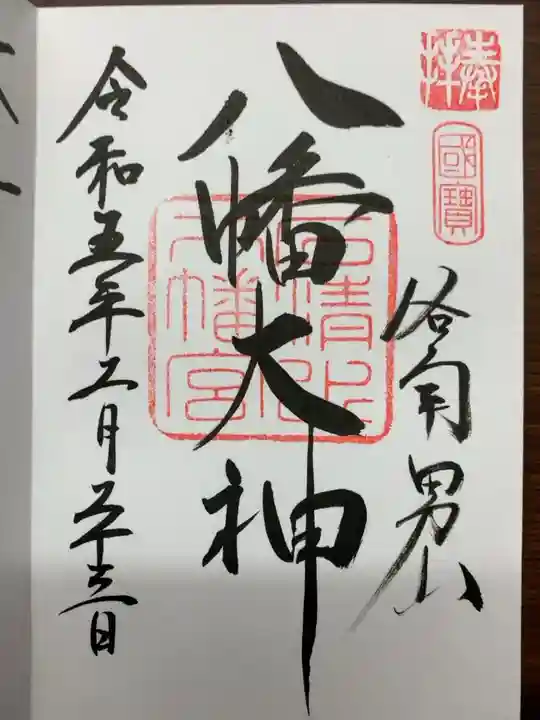 奉拝
國寶
谷町 男山
八幡大神
石清水八幡宮
令和五年二月二十三日